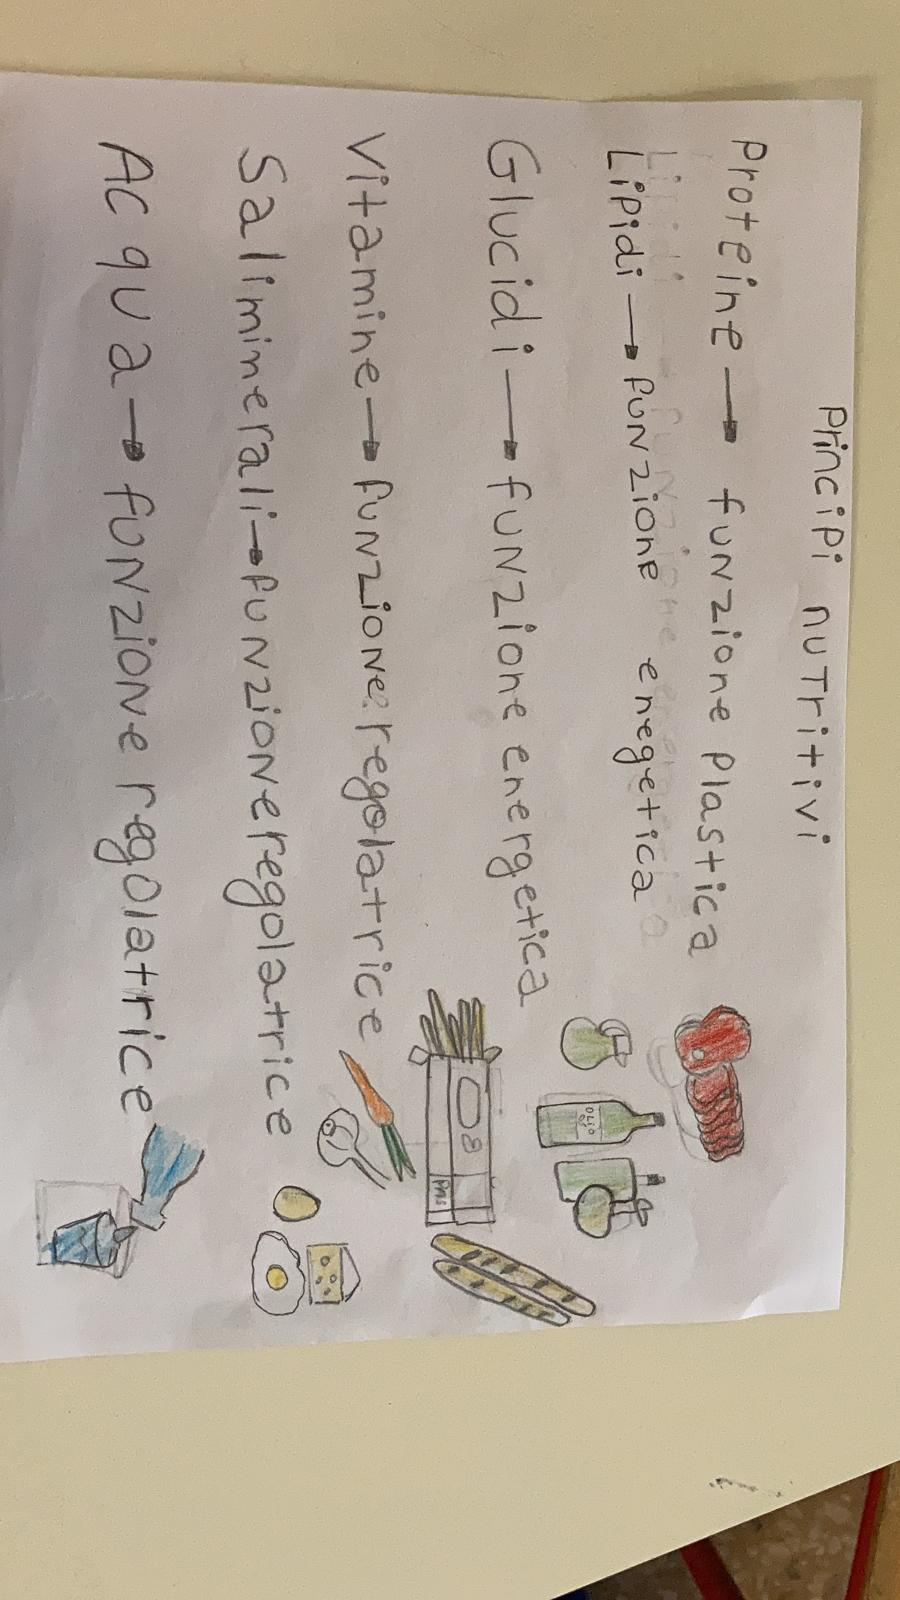 Principi nutritivi
Proteine → funzione plastica
Lipidi → funzione enegetica
Glucidi → funzione energetica
Vitamine → funzione regolatrice
Sali minerali → funzione regolatrice
Acqua → funzione regolatrice
OLIO